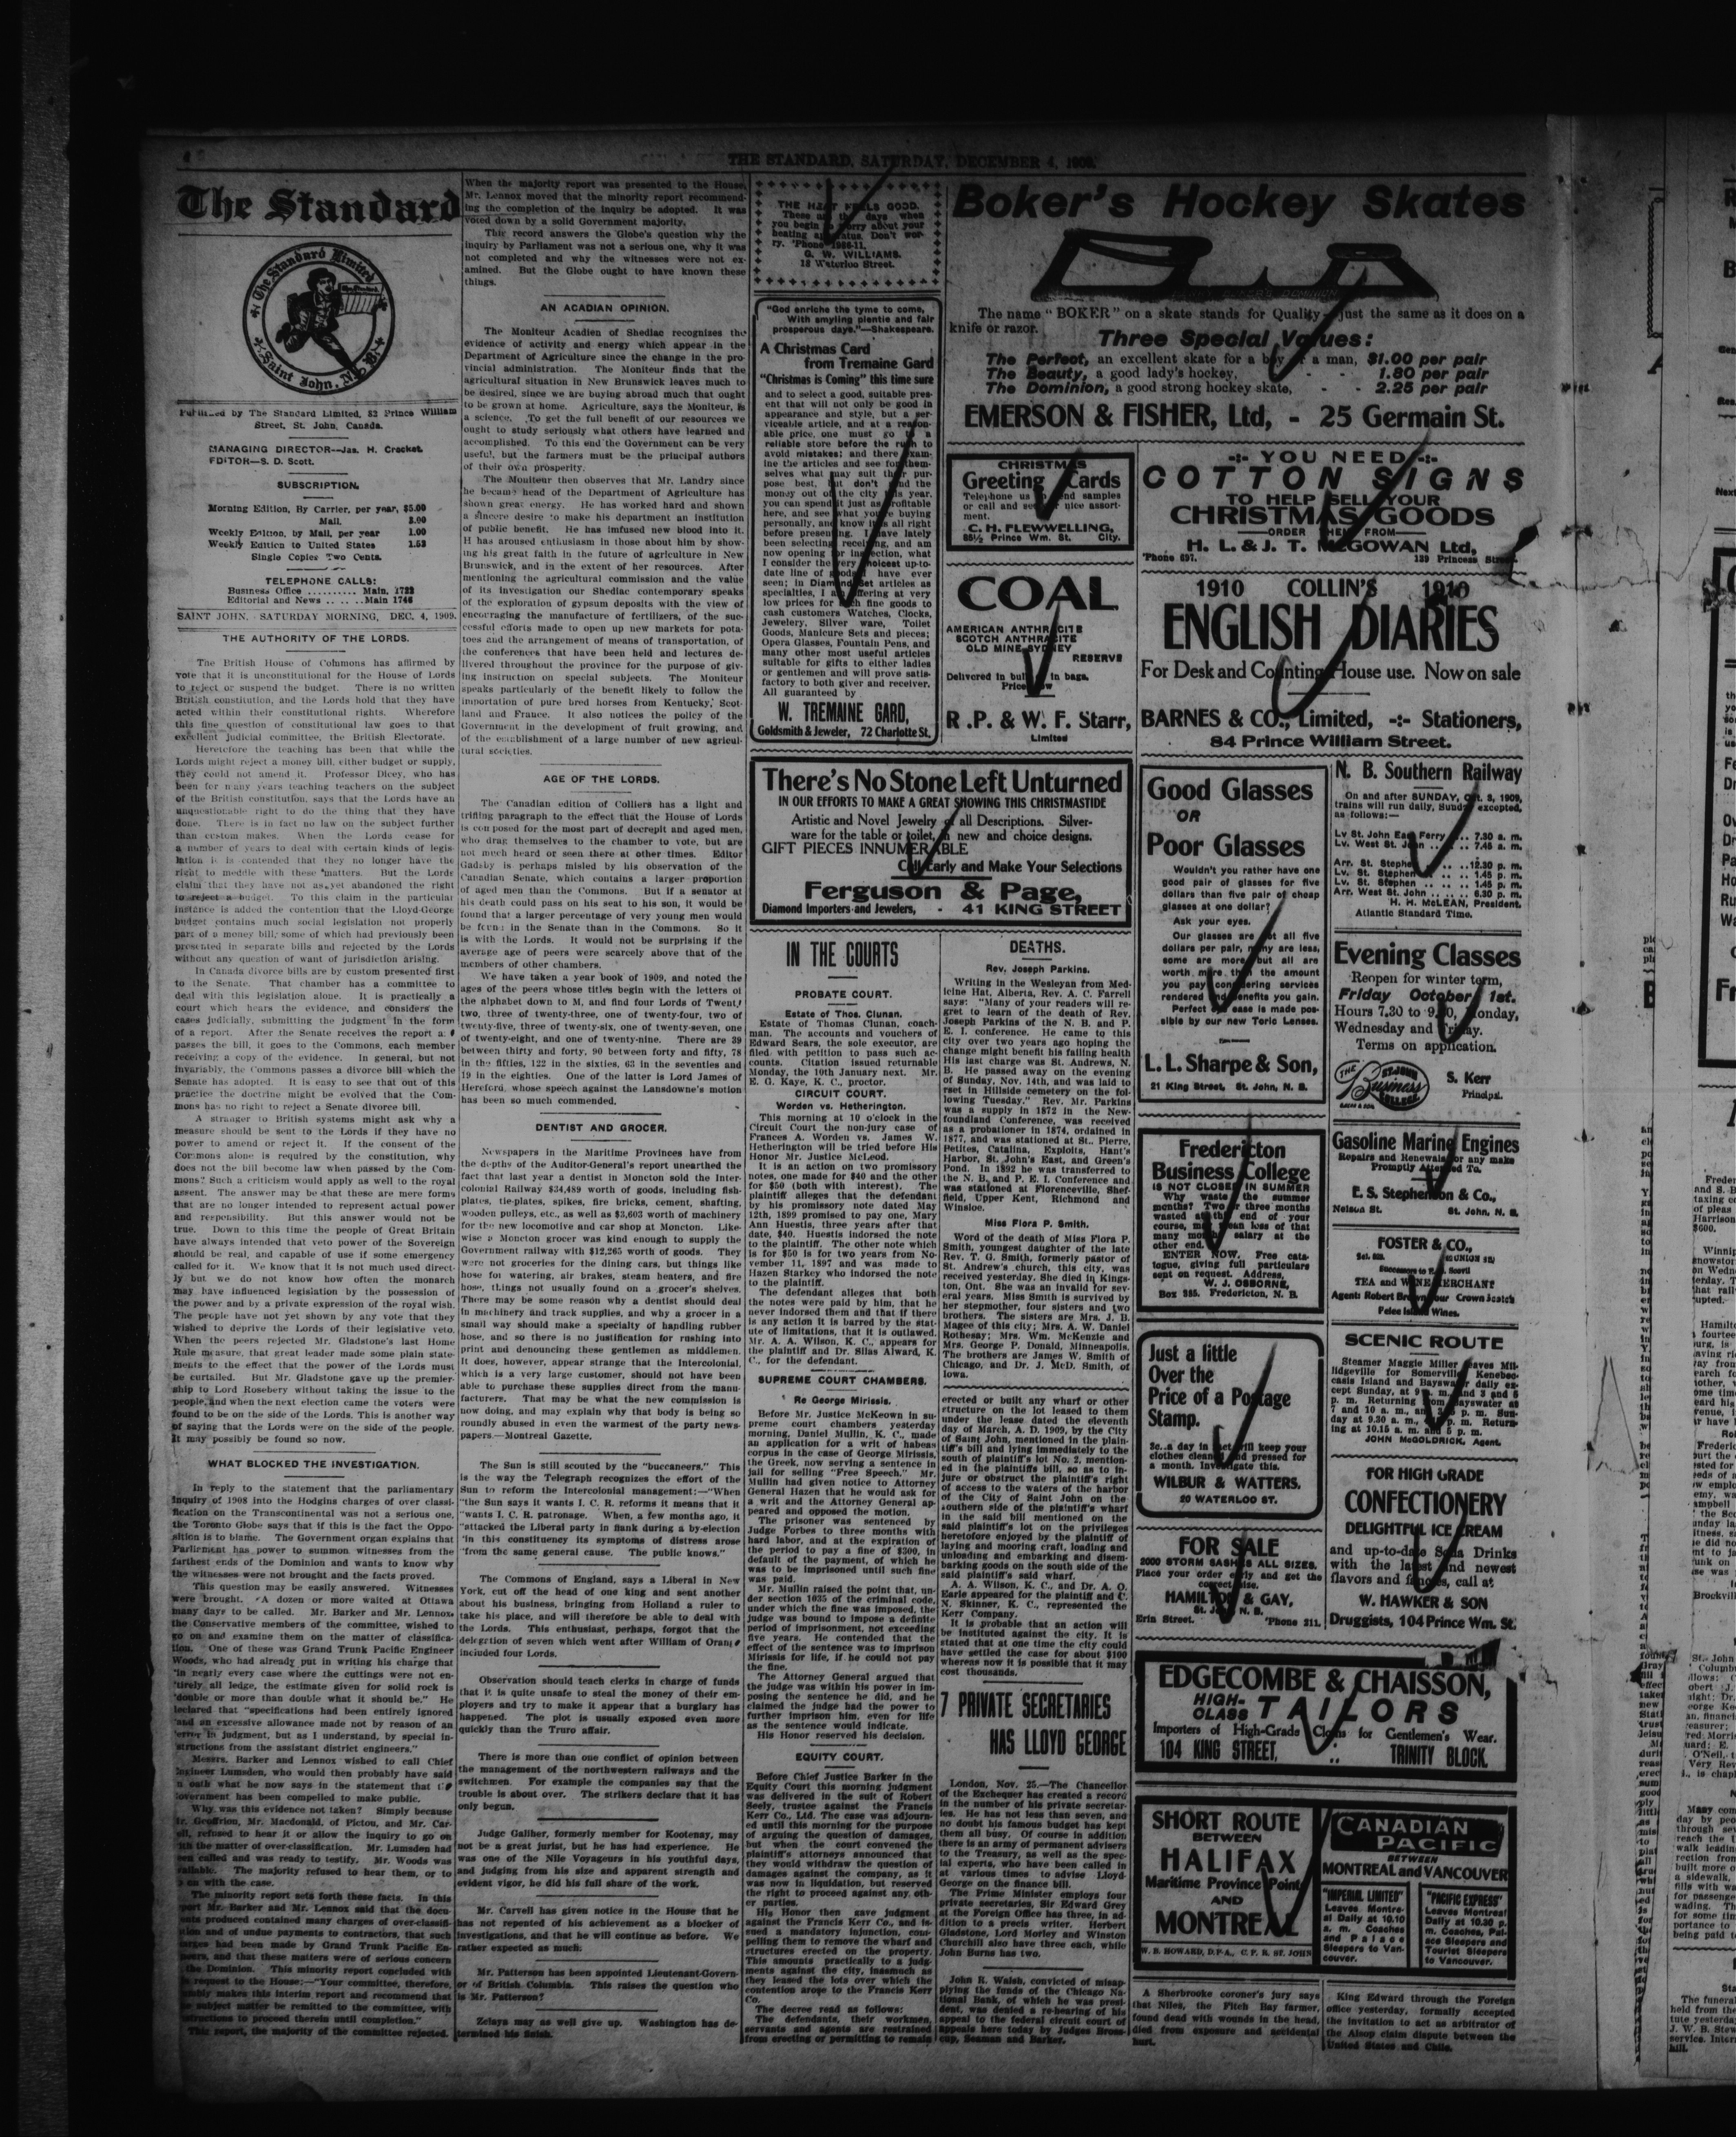 THE STANDARD, SATURDAY, DECEMBER 4, 1909.
The Standard
The Standard Limited
Saint John, N.B.
Published by The Standard Limited, 82 Prince William
Street, St. John, Canada.
MANAGING DIRECTOR—Jas. H. Crocket.
EDITOR—S. D. Scott.
SUBSCRIPTION.
Morning Edition, By Carrier, per year, $5.00
Mail, 3.00
Weekly Edition, by Mail, per year 1.00
Weekly Edition to United States 1.52
Single Copies Two Cents.
TELEPHONE CALLS:
Business Office .......... Main, 1722
Editorial and News .. .. .. Main 1746
SAINT JOHN, SATURDAY MORNING, DEC. 4, 1909.
THE AUTHORITY OF THE LORDS.
The British House of Commons has affirmed by
vote that it is unconstitutional for the House of Lords
to reject or suspend the budget. There is no written
British constitution, and the Lords hold that they have
acted within their constitutional rights. Wherefore
this fine question of constitutional law goes to that
excellent judicial committee, the British Electorate.
Heretofore the teaching has been that while the
Lords might reject a money bill, either budget or supply,
they could not amend it. Professor Dicey, who has
been for many years teaching teachers on the subject
of the British constitution, says that the Lords have an
unquestionable right to do the thing that they have
done. There is in fact no law on the subject further
than custom makes. When the Lords cease for
a number of years to deal with certain kinds of legis-
lation it is contended that they no longer have the
right to meddle with these matters. But the Lords
claim that they have not as yet abandoned the right
to reject a budget. To this claim in the particular
instance is added the contention that the Lloyd-George
budget contains much social legislation not properly
part of a money bill, some of which had previously been
presented in separate bills and rejected by the Lords
without any question of want of jurisdiction arising.
In Canada divorce bills are by custom presented first
to the Senate. That chamber has a committee to
deal with this legislation alone. It is practically a
court which hears the evidence, and considers the
cases judicially, submitting the judgment in the form
of a report. After the Senate receives the report and
passes the bill, it goes to the Commons, each member
receiving a copy of the evidence. In general, but not
invariably, the Commons passes a divorce bill which the
Senate has adopted. It is easy to see that out of this
practice the doctrine might be evolved that the Com-
mons has no right to reject a Senate divorce bill.
A stranger to British systems might ask why a
measure should be sent to the Lords if they have no
power to amend or reject it. If the consent of the
Commons alone is required by the constitution, why
does not the bill become law when passed by the Com-
mons? Such a criticism would apply as well to the royal
assent. The answer may be that these are mere forms
that are no longer intended to represent actual power
and responsibility. But this answer would not be
true. Down to this time the people of Great Britain
have always intended that veto power of the Sovereign
should be real, and capable of use if some emergency
called for it. We know that it is not much used direct-
ly but we do not know how often the monarch
may have influenced legislation by the possession of
the power and by a private expression of the royal wish.
The people have not yet shown by any vote that they
wished to deprive the Lords of their legislative veto.
When the peers rejected Mr. Gladstone's last Home
Rule measure, that great leader made some plain state-
ments to the effect that the power of the Lords must
be curtailed. But Mr. Gladstone gave up the premier-
ship to Lord Rosebery without taking the issue to the
people, and when the next election came the voters were
found to be on the side of the Lords. This is another way
of saying that the Lords were on the side of the people.
It may possibly be found so now.
WHAT BLOCKED THE INVESTIGATION.
In reply to the statement that the parliamentary
inquiry of 1908 into the Hodgins charges of over classi-
fication on the Transcontinental was not a serious one,
the Toronto Globe says that if this is the fact the Oppo-
sition is to blame. The Government organ explains that
Parliament has power to summon witnesses from the
farthest ends of the Dominion and wants to know why
the witnesses were not brought and the facts proved.
This question may be easily answered. Witnesses
were brought. A dozen or more waited at Ottawa
many days to be called. Mr. Barker and Mr. Lennox,
the Conservative members of the committee, wished to
go on and examine them on the matter of classifica-
tion. One of these was Grand Trunk Pacific Engineer
Woods, who had already put in writing his charge that
"in nearly every case where the cuttings were not en-
"tirely all ledge, the estimate given for solid rock is
"double or more than double what it should be." He
declared that "specifications had been entirely ignored
"and an excessive allowance made not by reason of an
"error in judgment, but as I understand, by special in-
"structions from the assistant district engineers."
Messrs. Barker and Lennox wished to call Chief
Engineer Lumsden, who would then probably have said
on oath what he now says in the statement that the
Government has been compelled to make public.
Why was this evidence not taken? Simply because
Mr. Geoffrion, Mr. Macdonald, of Pictou, and Mr. Car-
vell, refused to hear it or allow the inquiry to go on
with the matter of over-classification. Mr. Lumsden had
been called and was ready to testify. Mr. Woods was
available. The majority refused to hear them, or to
go on with the case.
The minority report sets forth these facts. In this
report Mr. Barker and Mr. Lennox said that the docu-
ments produced contained many charges of over-classifi-
cation and of undue payments to contractors, that such
charges had been made by Grand Trunk Pacific En-
gineers, and that these matters were of serious concern
to the Dominion. This minority report concluded with
a request to the House:—"Your committee, therefore,
humbly makes this interim report and recommend that
the subject matter be remitted to the committee, with
instructions to proceed therein until completion."
This report, the majority of the committee rejected.
When the majority report was presented to the House,
Mr. Lennox moved that the minority report recommend-
ing the completion of the inquiry be adopted. It was
voted down by a solid Government majority.
This record answers the Globe's question why the
inquiry by Parliament was not a serious one, why it was
not completed and why the witnesses were not ex-
amined. But the Globe ought to have known these
things.
AN ACADIAN OPINION.
The Moniteur Acadien of Shediac recognizes the
evidence of activity and energy which appear in the
Department of Agriculture since the change in the pro-
vincial administration. The Moniteur finds that the
agricultural situation in New Brunswick leaves much to
be desired, since we are buying abroad much that ought
to be grown at home. Agriculture, says the Moniteur, is
a science. To get the full benefit of our resources we
ought to study seriously what others have learned and
accomplished. To this end the Government can be very
useful, but the farmers must be the principal authors
of their own prosperity.
The Moniteur then observes that Mr. Landry since
he became head of the Department of Agriculture has
shown great energy. He has worked hard and shown
a sincere desire to make his department an institution
of public benefit. He has imfused new blood into it.
H has aroused enthusiasm in those about him by show-
ing his great faith in the future of agriculture in New
Brunswick, and in the extent of her resources. After
mentioning the agricultural commission and the value
of its investigation our Shediac contemporary speaks
of the exploration of gypsum deposits with the view of
encouraging the manufacture of fertilizers, of the suc-
cessful efforts made to open up new markets for pota-
toes and the arrangement of means of transportation, of
the conferences that have been held and lectures de-
livered throughout the province for the purpose of giv-
ing instruction on special subjects. The Moniteur
speaks particularly of the benefit likely to follow the
importation of pure bred horses from Kentucky, Scot-
land and France. It also notices the policy of the
Government in the development of fruit growing, and
of the establishment of a large number of new agricul-
tural societies.
AGE OF THE LORDS.
The Canadian edition of Colliers has a light and
trifling paragraph to the effect that the House of Lords
is composed for the most part of decrepit and aged men,
who drag themselves to the chamber to vote, but are
not much heard or seen there at other times. Editor
Gadsby is perhaps misled by his observation of the
Canadian Senate, which contains a larger proportion
of aged men than the Commons. But if a senator at
his death could pass on his seat to his son, it would be
found that a larger percentage of very young men would
be found in the Senate than in the Commons. So it
is with the Lords. It would not be surprising if the
average age of peers were scarcely above that of the
members of other chambers.
We have taken a year book of 1909, and noted the
ages of the peers whose titles begin with the letters of
the alphabet down to M, and find four Lords of Twenty
two, three of twenty-three, one of twenty-four, two of
twenty-five, three of twenty-six, one of twenty-seven, one
of twenty-eight, and one of twenty-nine. There are 39
between thirty and forty, 90 between forty and fifty, 78
in the fifties, 122 in the sixties, 63 in the seventies and
19 in the eighties. One of the latter is Lord James of
Hereford, whose speech against the Lansdowne's motion
has been so much commended.
DENTIST AND GROCER.
Newspapers in the Maritime Provinces have from
the depths of the Auditor-General's report unearthed the
fact that last year a dentist in Moncton sold the Inter-
colonial Railway $34,489 worth of goods, including fish-
plates, tie-plates, spikes, fire bricks, cement, shafting,
wooden pulleys, etc., as well as $3,603 worth of machinery
for the new locomotive and car shop at Moncton. Like-
wise a Moncton grocer was kind enough to supply the
Government railway with $12,265 worth of goods. They
were not groceries for the dining cars, but things like
hose for watering, air brakes, steam heaters, and fire
hose, things not usually found on a grocer's shelves.
There may be some reason why a dentist should deal
in machinery and track supplies, and why a grocer in a
small way should make a specialty of handling rubber
hose, and so there is no justification for rushing into
print and denouncing these gentlemen as middlemen.
It does, however, appear strange that the Intercolonial,
which is a very large customer, should not have been
able to purchase these supplies direct from the manu-
facturers. That may be what the new commission is
now doing, and may explain why that body is being so
roundly abused in even the warmest of the party news-
papers.—Montreal Gazette.
The Sun is still scouted by the "buccaneers." This
is the way the Telegraph recognizes the effort of the
Sun to reform the Intercolonial management:—"When
"the Sun says it wants I. C. R. reforms it means that it
"wants I. C. R. patronage. When, a few months ago, it
"attacked the Liberal party in flank during a by-election
"in this constituency its symptoms of distress arose
"from the same general cause. The public knows."
The Commons of England, says a Liberal in New
York, cut off the head of one king and sent another
about his business, bringing from Holland a ruler to
take his place, and will therefore be able to deal with
the Lords. This enthusiast, perhaps, forgot that the
delegation of seven which went after William of Orange
included four Lords.
Observation should teach clerks in charge of funds
that it is quite unsafe to steal the money of their em-
ployers and try to make it appear that a burglary has
happened. The plot is usually exposed even more
quickly than the Truro affair.
There is more than one conflict of opinion between
the management of the northwestern railways and the
switchmen. For example the companies say that the
trouble is about over. The strikers declare that it has
only begun.
Judge Galiher, formerly member for Kootenay, may
not be a great jurist, but he has had experience. He
was one of the Nile Voyageurs in his youthful days,
and judging from his size and apparent strength and
evident vigor, he did his full share of the work.
Mr. Carvell has given notice in the House that he
has not repented of his achievement as a blocker of
investigations, and that he will continue as before. We
rather expected as much.
Mr. Patterson has been appointed Lieutenant-Govern-
or of British Columbia. This raises the question who
is Mr. Patterson?
Zelaya may as well give up. Washington has de-
termined his finish.
THE HEAT FEELS GOOD.
These are the days when
you begin to worry about your
heating apparatus. Don't wor-
ry. 'Phone 1986-11.
G. W. WILLIAMS.
18 Waterloo Street.
"God enriche the tyme to come,
With smyling plentie and fair
prosperous daye."—Shakespeare.
A Christmas Card
from Tremaine Gard
"Christmas is Coming" this time sure
and to select a good, suitable pres-
ent that will not only be good in
appearance and style, but a ser-
viceable article, and at a reason-
able price, one must go to a
reliable store before the rush to
avoid mistakes; and there exam-
ine the articles and see for them-
selves what may suit their pur-
pose best, but don't send the
money out of the city this year.
you can spend it just as profitable
here, and see what you're buying
personally, and know it is all right
before presenting. I have lately
been selecting, receiving, and am
now opening for inspection, what
I consider the very choicest up-to-
date line of goods I have ever
seen; in Diamond Set articles as
specialties, I am offering at very
low prices for such fine goods to
cash customers Watches, Clocks,
Jewelery, Silver ware, Toilet
Goods, Manicure Sets and pieces;
Opera Glasses, Fountain Pens, and
many other most useful articles
suitable for gifts to either ladies
or gentlemen and will prove satis-
factory to both giver and receiver.
All guaranteed by
W. TREMAINE GARD,
Goldsmith & Jeweler, 72 Charlotte St.
Boker's Hockey Skates
The name "BOKER" on a skate stands for Quality—just the same as it does on a
knife or razor.
Three Special Values:
The Perfect, an excellent skate for a boy or a man, $1.00 per pair
The Beauty, a good lady's hockey, - - 1.80 per pair
The Dominion, a good strong hockey skate, - - 2.25 per pair
EMERSON & FISHER, Ltd, - 25 Germain St.
CHRISTMAS
Greeting Cards
Telephone us to send samples
or call and see our nice assort-
ment.
C. H. FLEWWELLING,
85½ Prince Wm. St. City.
-:- YOU NEED -:-
COTTON SIGNS
TO HELP SELL YOUR
CHRISTMAS GOODS
—ORDER THEM FROM—
H. L. & J. T. McGOWAN Ltd,
'Phone 697. 139 Princess Street.
COAL
AMERICAN ANTHRACITE
SCOTCH ANTHRACITE
OLD MINE SYDNEY
RESERVE
Delivered in bulk or in bags.
Prices low
R. P. & W. F. Starr,
Limited
1910 COLLIN'S 1910
ENGLISH DIARIES
For Desk and Counting House use. Now on sale
BARNES & CO., Limited, -:- Stationers,
84 Prince William Street.
There's No Stone Left Unturned
IN OUR EFFORTS TO MAKE A GREAT SHOWING THIS CHRISTMASTIDE
Artistic and Novel Jewelry of all Descriptions. Silver-
ware for the table or toilet, in new and choice designs.
GIFT PIECES INNUMERABLE
Call Early and Make Your Selections
Ferguson & Page,
Diamond Importers and Jewelers, - 41 KING STREET
IN THE COURTS
PROBATE COURT.
Estate of Thos. Clunan.
Estate of Thomas Clunan, coach-
man. The accounts and vouchers of
Edward Sears, the sole executor, are
filed with petition to pass such ac-
counts. Citation issued returnable
Monday, the 10th January next. Mr.
E. G. Kaye, K. C., proctor.
CIRCUIT COURT.
Worden vs. Hetherington.
This morning at 10 o'clock in the
Circuit Court the non-jury case of
Frances A. Worden vs. James W.
Hetherington will be tried before His
Honor Mr. Justice McLeod.
It is an action on two promissory
notes, one made for $40 and the other
for $50 (both with interest). The
plaintiff alleges that the defendant
by his promissory note dated May
12th, 1899 promised to pay one, Mary
Ann Huestis, three years after that
date, $40. Huestis indorsed the note
to the plaintiff. The other note which
is for $50 is for two years from No-
vember 11, 1897 and was made to
Hazen Starkey who indorsed the note
to the plaintiff.
The defendant alleges that both
the notes were paid by him, that he
never indorsed them and that if there
is any action it is barred by the stat-
ute of limitations, that it is outlawed.
Mr. A. A. Wilson, K. C., appears for
the plaintiff and Dr. Silas Alward, K.
C., for the defendant.
SUPREME COURT CHAMBERS.
Re George Mirissis.
Before Mr. Justice McKeown in su-
preme court chambers yesterday
morning, Daniel Mullin, K. C., made
an application for a writ of habeas
corpus in the case of George Mirissis,
the Greek, now serving a sentence in
jail for selling "Free Speech." Mr.
Mullin had given notice to Attorney
General Hazen that he would ask for
a writ and the Attorney General ap-
peared and opposed the motion.
The prisoner was sentenced by
Judge Forbes to three months with
hard labor, and at the expiration of
the period to pay a fine of $300, in
default of the payment, of which he
was to be imprisoned until such fine
was paid.
Mr. Mullin raised the point that, un-
der section 1035 of the criminal code,
under which the fine was imposed, the
judge was bound to impose a definte
period of imprisonment, not exceeding
five years. He contended that the
effect of the sentence was to imprison
Mirissis for life, if he could not pay
the fine.
The Attorney General argued that
the judge was within his power in im-
posing the sentence he did, and he
claimed the judge had the power to
further imprison him, even for life
as the sentence would indicate.
His Honor reserved his decision.
EQUITY COURT.
Before Chief Justice Barker in the
Equity Court this morning judgment
was delivered in the suit of Robert
Seely, trustee against the Francis
Kerr Co., Ltd. The case was adjourn-
ed until this morning for the purpose
of arguing the question of damages,
but when the court convened the
plaintiff's attorneys announced that
they would withdraw the question of
damages against the company, as it
was now in liquidation, but reserved
the right to proceed against any oth-
er parties.
His Honor then gave judgment
against the Francis Kerr Co., and is-
sued a mandatory injunction, com-
pelling them to remove the wharf and
structures erected on the property.
This amounts practically to a judg-
ments against the city, inasmuch as
they leased the lots over which the
contention arose to the Francis Kerr
Co.
The decree read as follows:
The defendants, their workmen,
servants and agents are restrained
from erecting or permitting to remain
DEATHS.
Rev. Joseph Parkins.
Writing in the Wesleyan from Med-
icine Hat, Alberta, Rev. A. C. Farrell
says: "Many of your readers will re-
gret to learn of the death of Rev.
Joseph Parkins of the N. B. and P.
E. I. conference. He came to this
city over two years ago hoping the
change might benefit his failing health
His last charge was St. Andrews, N.
B. He passed away on the evening
of Sunday, Nov. 14th, and was laid to
rset in Hillside cemetery on the fol-
lowing Tuesday." Rev. Mr. Parkins
was a supply in 1872 in the New-
foundland Conference, was received
as a probationer in 1874, ordained in
1877, and was stationed at St.. Pierre,
Petites, Catalina, Exploits, Hant's
Harbor, St. John's East, and Green's
Pond. In 1892 he was transferred to
the N. B. and P. E. I. Conference and
was stationed at Florenceville, Shef-
field, Upper Kent, Richmond and
Winsloe.
Miss Flora P. Smith.
Word of the death of Miss Flora P.
Smith, youngest daughter of the late
Rev. T. G. Smith, formerly pastor of
St. Andrew's church, this city, was
received yesterday. She died in Kings-
ton, Ont. She was an invalid for sev-
eral years. Miss Smith is survived by
her stepmother, four sisters and two
brothers. The sisters are Mrs. J. B.
Magee of this city; Mrs. A. W. Daniel
Rothesay; Mrs. Wm. McKenzie and
Mrs. George P. Donald, Minneapolis.
The brothers are James W. Smith of
Chicago, and Dr. J. McD. Smith, of
Iowa.
erected or built any wharf or other
structure on the lot leased to them
under the lease dated the eleventh
day of March, A. D. 1909, by the City
of Saint John, mentioned in the plain-
tiff's bill and lying immediately to the
south of plaintiff's lot No. 2, mention-
ed in the plaintiffs bill, so as to in-
jure or obstruct the plaintiff's right
of access to the waters of the harbor
of the City of Saint John on the
southern side of the plaintiff's wharf
in the said bill mentioned on the
said plaintiff's lot on the privileges
heretofore enjoyed by the plaintiff of
laying and mooring craft, loading and
unloading and embarking and disem-
barking goods on the south side of the
said plaintiff's said wharf.
A. A. Wilson, K. C., and Dr. A. O.
Earle appeared for the plaintiff and C.
N. Skinner, K. C., represented the
Kerr Company.
It is probable that an action will
be instituted against the city. It is
stated that at one time the city could
have settled the case for about $100
whereas now it is possible that it may
cost thousands.
7 PRIVATE SECRETARIES
HAS LLOYD GEORGE
London, Nov. 25.—The Chancellor
of the Exchequer has created a record
in the number of his private secretar-
ies. He has not less than seven, and
no doubt his famous budget has kept
them all busy. Of course in addition
there is an army of permanent advisers
to the Treasury, as well as the spec-
ial experts, who have been called in
at various times to advise Lloyd-
George on the finance bill.
The Prime Minister employs four
private secretaries, Sir Edward Grey
at the Foreign Office has three, in ad-
dition to a precis writer. Herbert
Gladstone, Lord Morley and Winston
Churchill also have three each, while
John Burns has two.
John R. Walsh, convicted of misap-
plying the funds of the Chicago Na-
tional Bank, of which he was presi-
dent, was denied a re-hearing of his
appeal to the federal circuit court of
appeals here today by Judges Gross-
cup, Seaman and Barker.
Good Glasses
OR
Poor Glasses
Wouldn't you rather have one
good pair of glasses for five
dollars than five pair of cheap
glasses at one dollar?
Ask your eyes.
Our glasses are not all five
dollars per pair, many are less,
some are more, but all are
worth more than the amount
you pay considering services
rendered and benefits you gain.
Perfect eye ease is made pos-
sible by our new Toric Lenses.
L. L. Sharpe & Son,
21 King Street, St. John, N. B.
Fredericton
Business College
IS NOT CLOSED IN SUMMER
Why waste the summer
months? Two or three months
wasted at this end of your
course, may mean loss of that
many months' salary at the
other end.
ENTER NOW. Free cata-
logue, giving full particulars
sent on request. Address,
W. J. OSBORNE,
Box 385. Fredericton, N. B.
Just a little
Over the
Price of a Postage
Stamp.
3c. a day in fact will keep your
clothes cleaned and pressed for
a month. Investigate this.
WILBUR & WATTERS.
20 WATERLOO ST.
FOR SALE
2000 STORM SASHES ALL SIZES.
Place your order early and get the
correct size.
HAMILTON & GAY,
St. John, N. B.
Erin Street. 'Phone 211.
N. B. Southern Railway
On and after SUNDAY, Oct. 3, 1909,
trains will run daily, Sunday excepted,
as follows:—
Lv St. John East Ferry .. .. 7.30 a. m.
Lv. West St. John .. .. .. 7.45 a. m.
Arr. St. Stephen .. .. ..12.30 p. m.
Lv. St. Stephen .. .. .. 1.45 p. m.
Lv. St. Stephen .. .. .. 1.45 p. m.
Arr. West St. John .. .. .. 6.30 p. m.
H. H. McLEAN, President.
Atlantic Standard Time.
Evening Classes
Reopen for winter term,
Friday October 1st.
Hours 7.30 to 9.30, Monday,
Wednesday and Friday.
Terms on application.
THE
ST. JOHN
Business
COLLEGE
S. Kerr
Principal.
Gasoline Marine Engines
Repairs and Renewals for any make
Promptly Attended To.
E. S. Stephenson & Co.,
Nelson St. St. John, N. B.
FOSTER & CO.,
UNION ST.
TEA and WINE MERCHANT
Agents Robert Brown Four Crown Scotch
Pelee Island Wines.
SCENIC ROUTE
Steamer Maggie Miller leaves Mil-
lidgeville for Somerville, Kennebec-
casis Island and Bayswater daily ex-
cept Sunday, at 9 a. m. and 3 and 5
p. m. Returning from Bayswater at
7 and 10 a. m., and 3.45 p. m. Sun-
day at 9.30 a. m., and 5 p. m. Return-
ing at 10.15 a. m. and 5 p. m.
JOHN McGOLDRICK, Agent.
FOR HIGH GRADE
CONFECTIONERY
DELIGHTFUL ICE CREAM
and up-to-date Soda Drinks
with the latest and newest
flavors and fancies, call at
W. HAWKER & SON
Druggists, 104 Prince Wm. St.
EDGECOMBE & CHAISSON,
HIGH-
CLASS TAILORS
Importers of High-Grade Cloths for Gentlemen's Wear.
104 KING STREET, TRINITY BLOCK.
SHORT ROUTE
BETWEEN
HALIFAX
Maritime Province Points
AND
MONTREAL
W. B. HOWARD, D.P.A., C. P. R. ST. JOHN
CANADIAN
PACIFIC
BETWEEN
MONTREAL and VANCOUVER
"IMPERIAL LIMITED"
Leaves Montre-
al Daily at 10.10
a. m. Coaches
and Palace
Sleepers to Van-
couver.
"PACIFIC EXPRESS"
Leaves Montreal
Daily at 10.30 p.
m. Coaches, Pal-
ace Sleepers and
Tourist Sleepers
to Vancouver.
A Sherbrooke coroner's jury says
that Niles, the Fitch Bay farmer,
found dead with wounds in the head,
died from exposure and accidental
hurt.
King Edward through the Foreign
office yesterday, formally accepted
the invitation to act as arbitrator of
the Alsop claim dispute between the
United States and Chile.